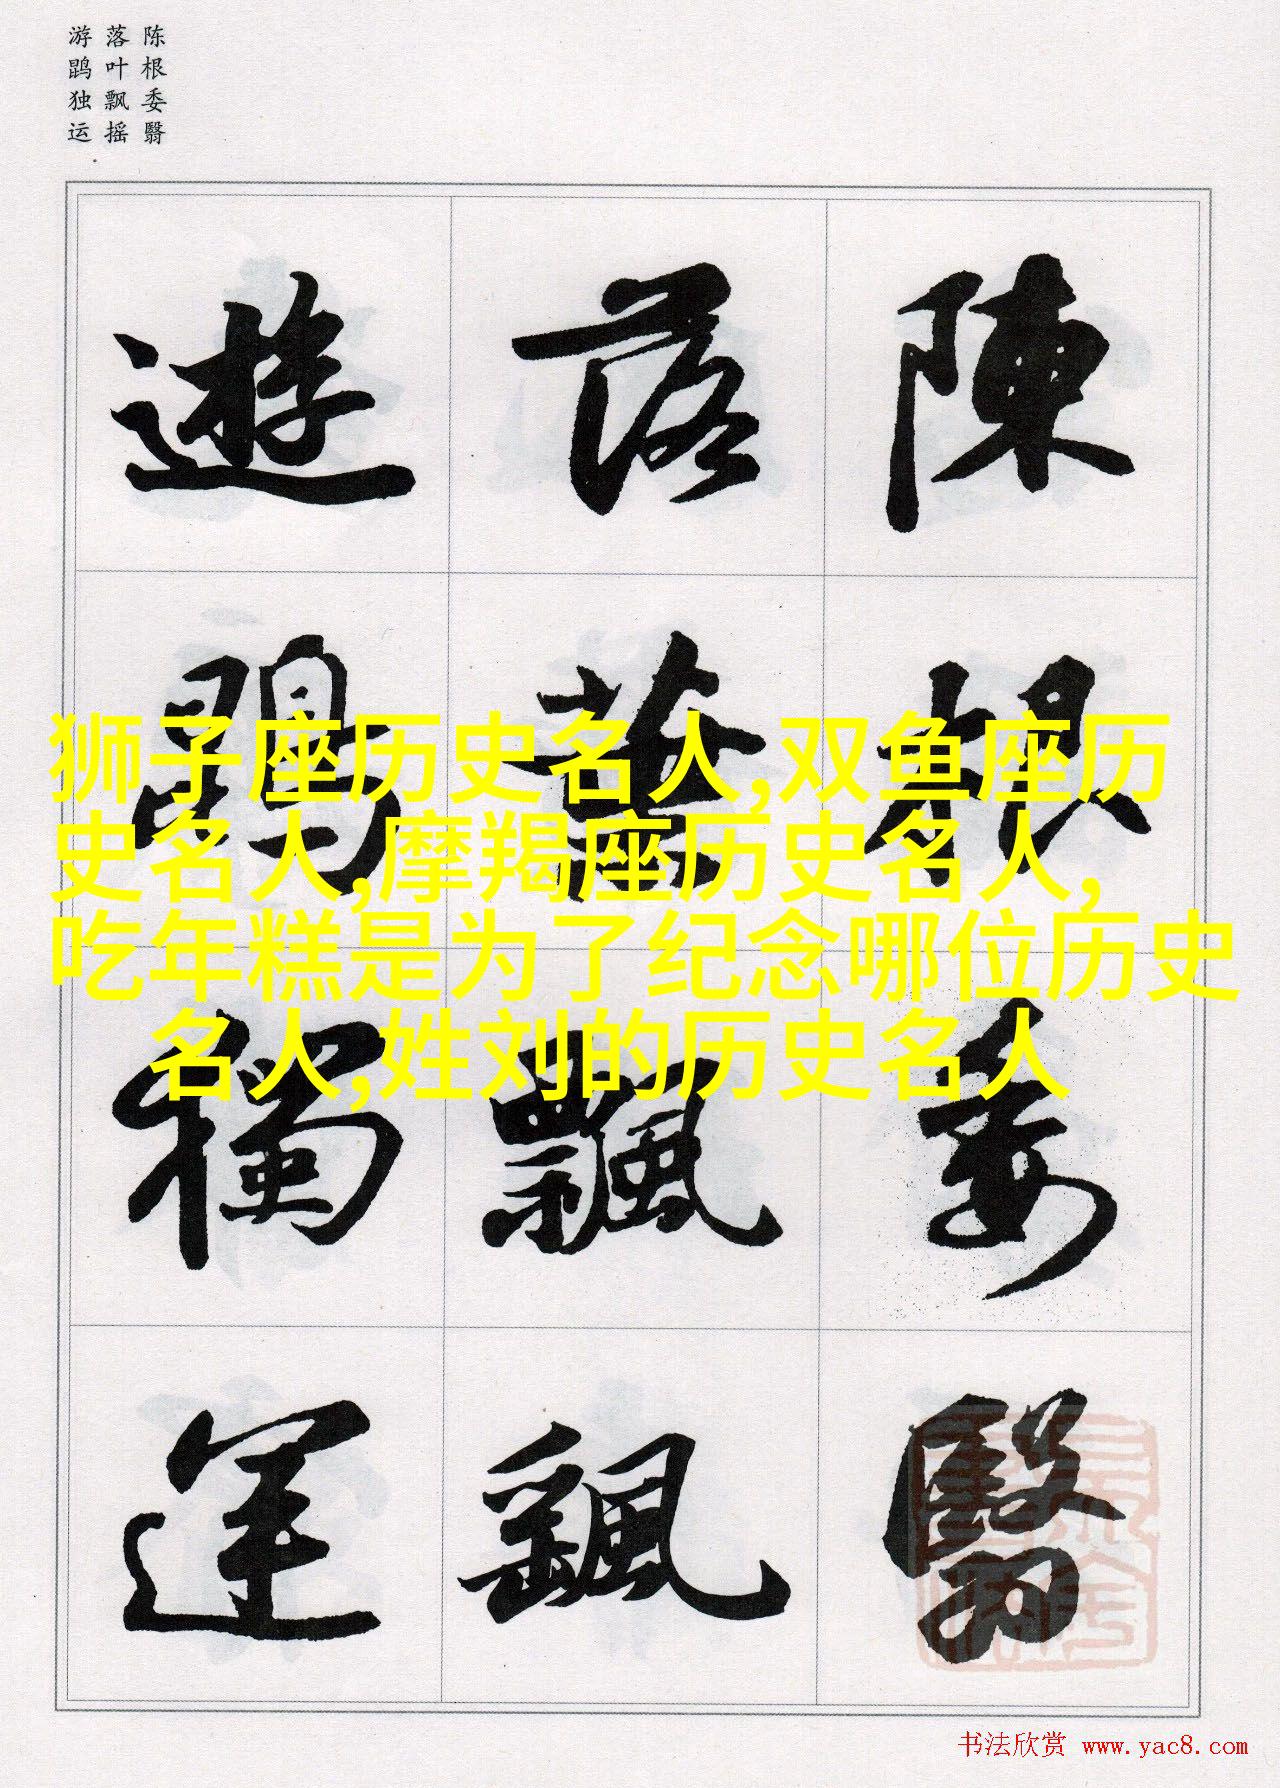 陈根委翳
落叶飘摇
游鹍独运
陳根委翳
落葉飄颻
遊鵾獨運
狮子座历史名人,双鱼座历
史名人,摩羯座历史名人,
吃年糕是为了纪念哪位历史
名人,姓刘的历史名人
书法欣赏 www.yac8.com